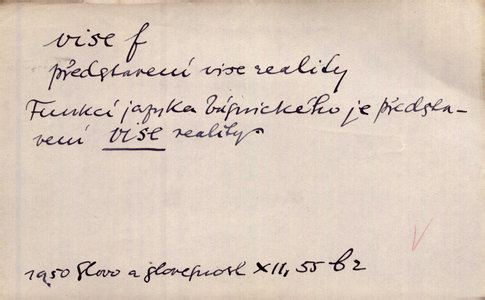 vise f
představení vise reality
Funkcí jazyka básnického je předsta-
vení vise reality.
1950 Slovo a slovesnost XII, 55 b2